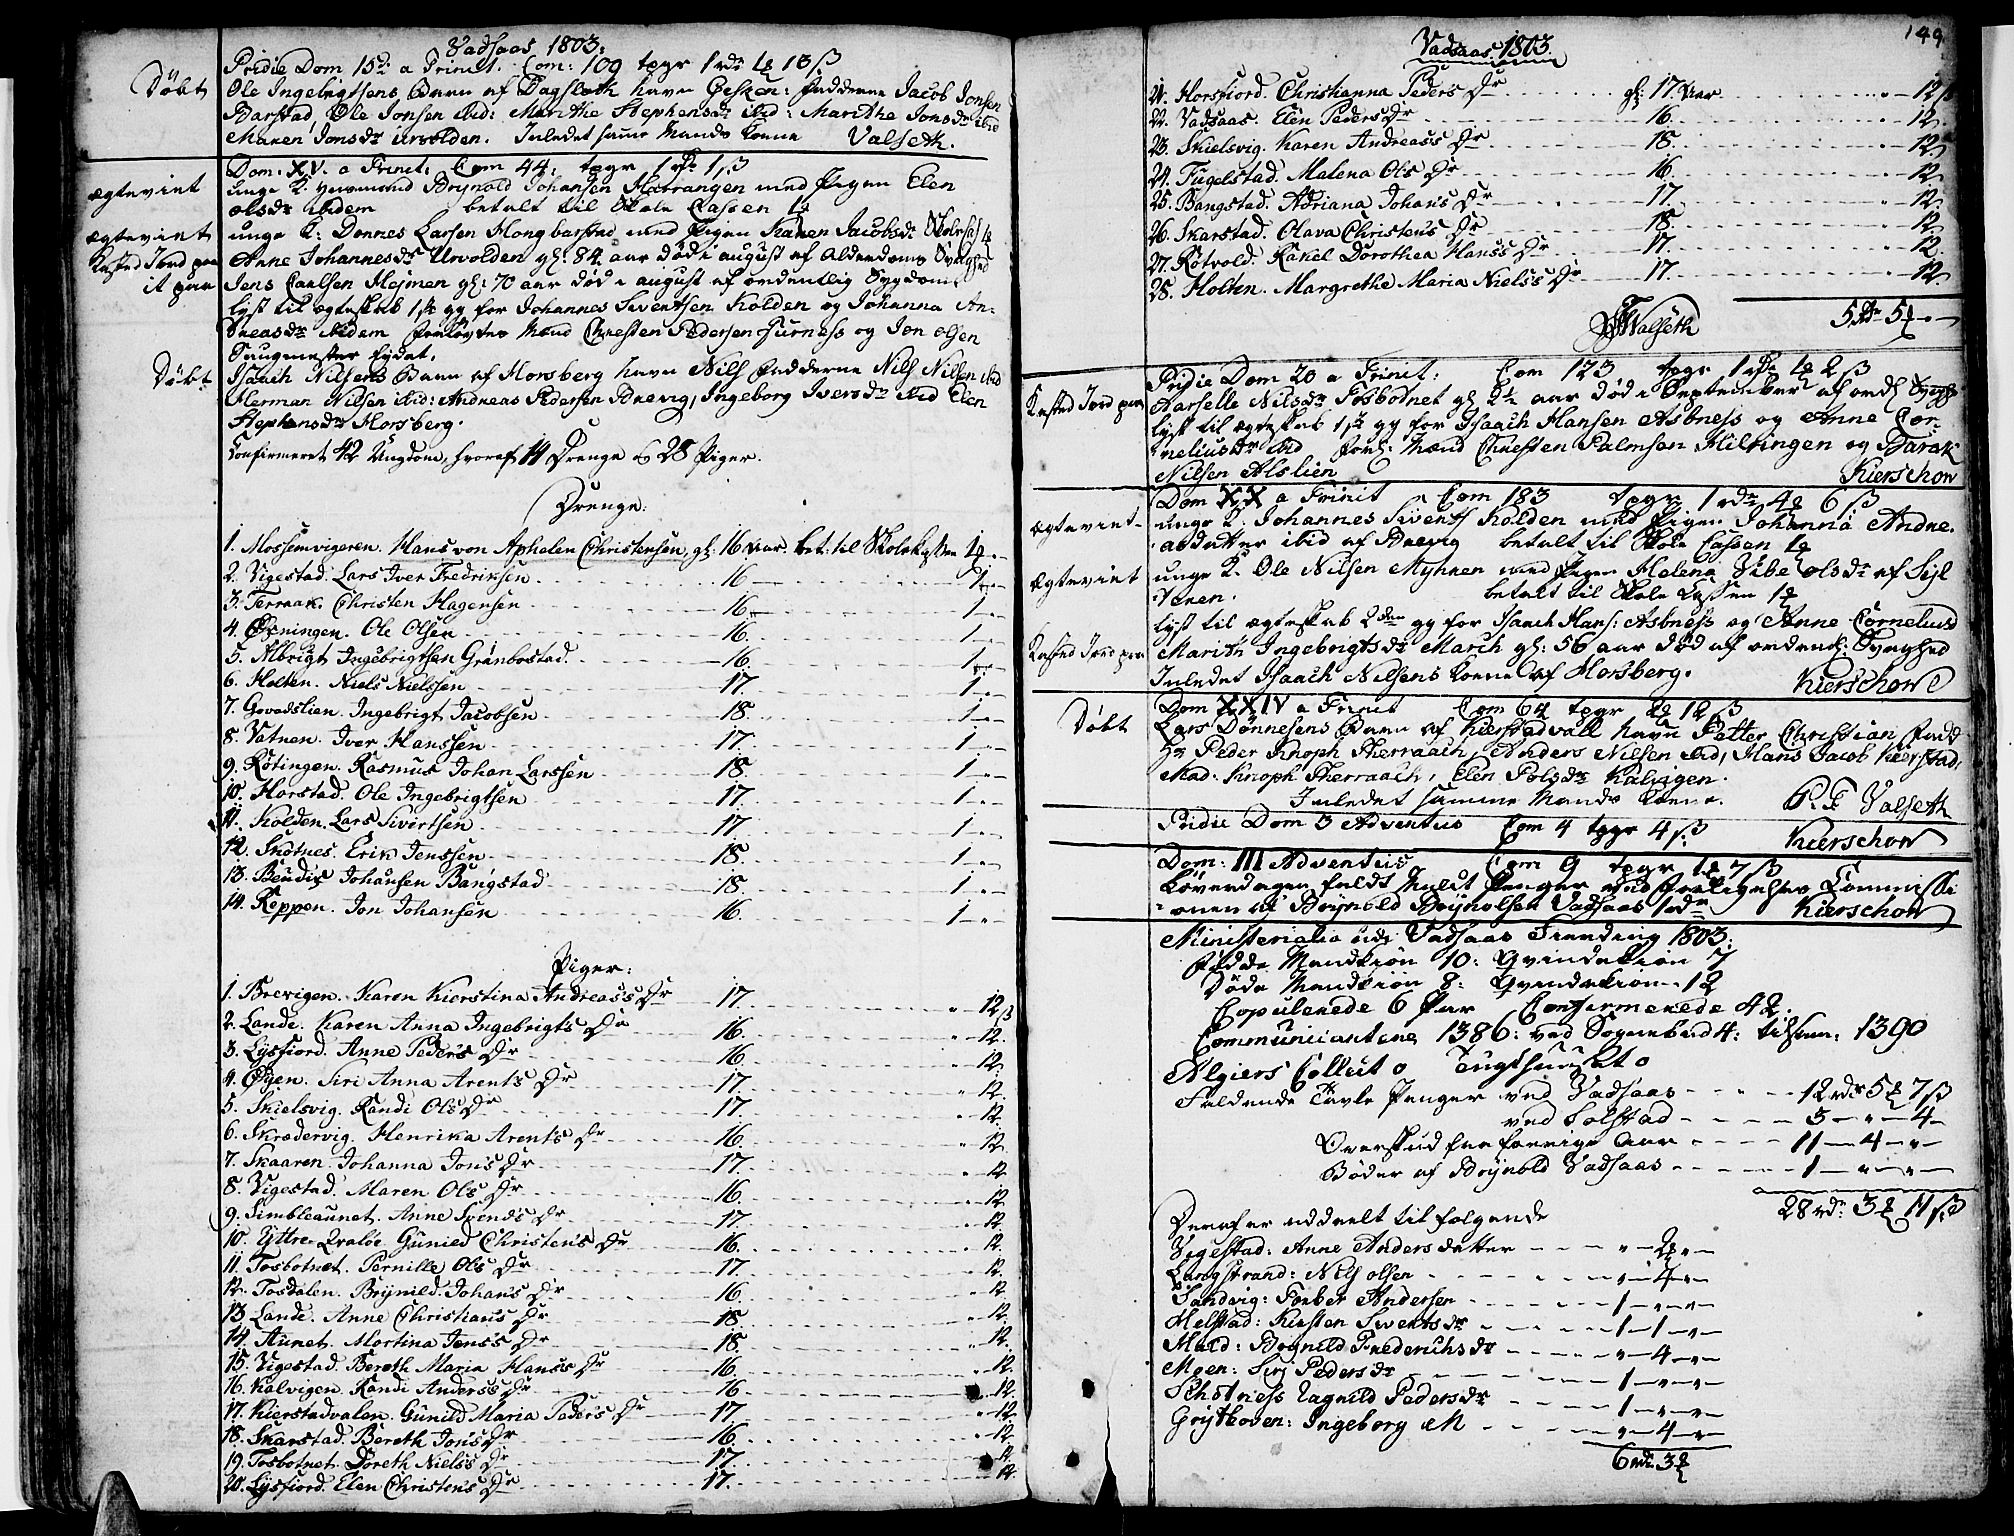 Vadsaas 1803.
Pridie Dom 15de a Trinit. Com: 109 tpgr 1 rdr 18 ß
Døbt
Ole Ingebrigtsens Barn af Dagsloth havn Gesken: Fadderne Jacob Jonsen
Barstad, Ole Jonsen ibid: Marithe Stephensdr ibid: Marithe Jonsdr ibid
Maren Jonsdr Urvolden. Inledet samme Mands Kone Valseth.
Dom: XV. a Trinit: Com 44. tpgr 1 ß
Ægteviet
unge K: Brynold Johansen Hovrangen med Pigen Elen
olsdr ibidem betalt til Skole Cassen
Ægteviet
unge K: Donnes Larsen Hongbarstad med Pigen Karen Jacobsdr
Kasted Jord paa
Anne Johannesdr Urvolden gl: 84 aar død i august af Alderdoms Svaghed
it paa
Jens Carlsen Hejmen gl: 70 aar død i august af ordentlig Sygdom
lyst til ægteskab 1ste gg for Johannes Siventsen Kolden og Johanna An-
dreasdr ibidem Forlovtes Mænd Christen Pedersen Furness og Jon olsen
Saugmester Eydet.
Døbt
Isaach Nilsens Barn af Horsberg havn Nils Fadderne Nils Nilsen ibid
Herman Nilsen ibid: Andreas Pedersen Brevig, Ingeborg Iversdr ibid Elen
Stephensdr Horsberg.
Confirmeret 42 Ungdom, hvoraf 14 Drenge og 28 Piger.
Drenge:
1. Mossemvigeren. Hans von Aphelen Christensen, gl: 16 Aar. bet: til Skolekassen 1
2. Vigestad. Lars Iver Fredriksen 16 1
3. Terraak. Christen Hagensen 16 1
4. Øxningen. Ole Olsen 16. 1
5. Albrigt Ingebrigtsen Grønbostad 16. 1
6. Holten. Niels Nielssen 17. 1
7. Govadslien. Ingebrigt Jacobsen 18. 1
8. Vatnen. Iver Hanssen 17. 1
9. Røtingen. Rasmus Johan Larssen 18. 1
10. Horstad. Ole Ingebrigtsen 17. 1
11. Kolden. Lars Sivirtsen 17 1
12. Skotnes. Erik Jenssen 18. 1
13. Bendix Johansen Bangstad 18. 1
14. Reppen. Jon Johansen 16. 1
Piger:
1. Brevigen. Karen Kierstina Andreas's Dr 17. 12 ß
2. Lande. Karen Anna Ingebrigts Dr 16. 12.
3. Lysfiord. Anne Peders Dr 16 12.
4. Øyen. Siri Anna Arents Dr 17. 12.
5. Skielsvig. Randi Ols Dr 17. 12.
6. Skrædervig. Henrika Arents Dr 16 12
7. Skaaren. Johanna Jons Dr 17. 12
8. Vigestad. Maren Ols Dr 16. 12.
9. Simbleaunet. Anne Svends Dr 17. 12.
10. Yttre Qvaløe. Gunild Christens Dr 16. 12.
11. Tosbotnet. Pernille Ols Dr 17. 12.
12. Tosdalen. Brynild Johans Dr 16 12.
13. Lande. Anne Christians Dr 18. 12.
14. Aunet. Martina Jens's Dr 18. 12.
15. Vigestad. Bereth Maria Hans's Dr 16. 12.
16. Kalvigen. Randi Anders's Dr 16 12.
17. Kierstadvalen. Gunild Maria Peders Dr 17 12.
18. Skarstad. Bereth Jons Dr 16. 12.
19. Tosbotnet. Dorethe Niels's Dr 17. 12.
20. Lysfiord. Elen Christens Dr 17. 12
149
Vadsaas. 1803.
21. Horsfiord. Christianna Peders Dr gl: 17 Aar 12 ß
22. Vadsaas. Elen Peders Dr 16. 12.
23. Skielsvig. Karen Andreas's Dr 18. 12.
24. Fugelstad. Malena Ols Dr 16. 12.
25. Bangstad. Adriana Johans Dr 17. 12.
26. Skarstad. Olava Christens Dr 18. 12.
27. Røtvold. Rakel Dorothea Hans's Dr 17. 12.
28. Holten. Margrethe Maria Niels's Dr 17. 12.
Walseth 5 5
Pridie Dom 20 a Trinit: Com 123 tpgr 2 ß
Kasted Jord paa
Aarselle Nilsdr Tosbotnet gl 2½ aar død i September af ordl Sygd
lyst til ægteskab 1ste gg for Isaach Hansen Asbness og Anne Cor-
neliusdr ibid Forl: Mænd Christen Palmsen Hildingen og Barak
Nilsen Alslien Kierschow
Dom XX a Trinit Com 183 tpgr 1 rdr 4 6 ß
Ægteviet
unge K. Johannes Sivents Kolden med Pigen Johanna Andre-
asdatter ibid af Brevig betalt til Skole Cassen 1
Ægteviet
unge K. Ole Nilsen Myhren med Pigen Helena Vibe olsdr af Sejl
betalt til Skole Cassen 1
lyst til ægteskab 2den gg for Isaach Hans: Asbness og Anne Cornelius
Kasted Jord paa
Marith Ingebrigtsdr March gl: 56 aar død af ordenl: Svaghed
Inledet Isaach Nilsens Kone af Horsberg. Kierschow
Dom XXIV a Trinit Com 64 tpgr 12 ß
Døbt
Lars Dønnesens Barn af Kierstadvall havn Petter Christian, Fadd
Hr Peder Knoph Therraach, Anders Nilsen ibid, Hans Jacob Kierstad,
Mad: Knoph Therraach, Elen Polsdr Kalvigen.
Inledet samme Mands Kone. P.F Valseth
Pridie Dom 3 Adventus Com 4 tpgr 4 ß Kierschow
Dom: III Adventus Com 9 tpgr 7 ß
Løverdagen faldt Mulct Penger ved Forligelses Commissi
onen af Brynold Brynolsen Vadsaas 1 rdr Kierschow
Ministerialia udi Vadsaas Fierding 1803.
Fødde Mandkiøn 10: Qvindekiøn 7
Døde Mandkiøn 8: Qvindekiøn 12
Copulerede 6 Par Confirmerede 42.
Communicanterne 1386: ved Sognebud 4: tilsam: 1390
Algiers Collect o Tugthuuset o
Faldende Tavle Penger ved Vadsaas 12 rdr 5 7 ß
ved Solstad 3 4
Overskud fra forrige Aar 11 4
Bøder af Brynold Vadsaas 1
28 rdr 3 11 ß
Deraf er uddeelt til følgende
Vigestad: Anne Andersdatter 2
Langstrand: Nils olsen 4
Sandvig: Torber Andersen 1
Melstad: Kirsten Siventsdr 1 1
Muld: Brynild Frederichsdr 4
Moen: Siri Pedersdr 1
Schotness Ragnild Pedersdr 1
Grythoven: Ingeborg 4
6 rdr 3